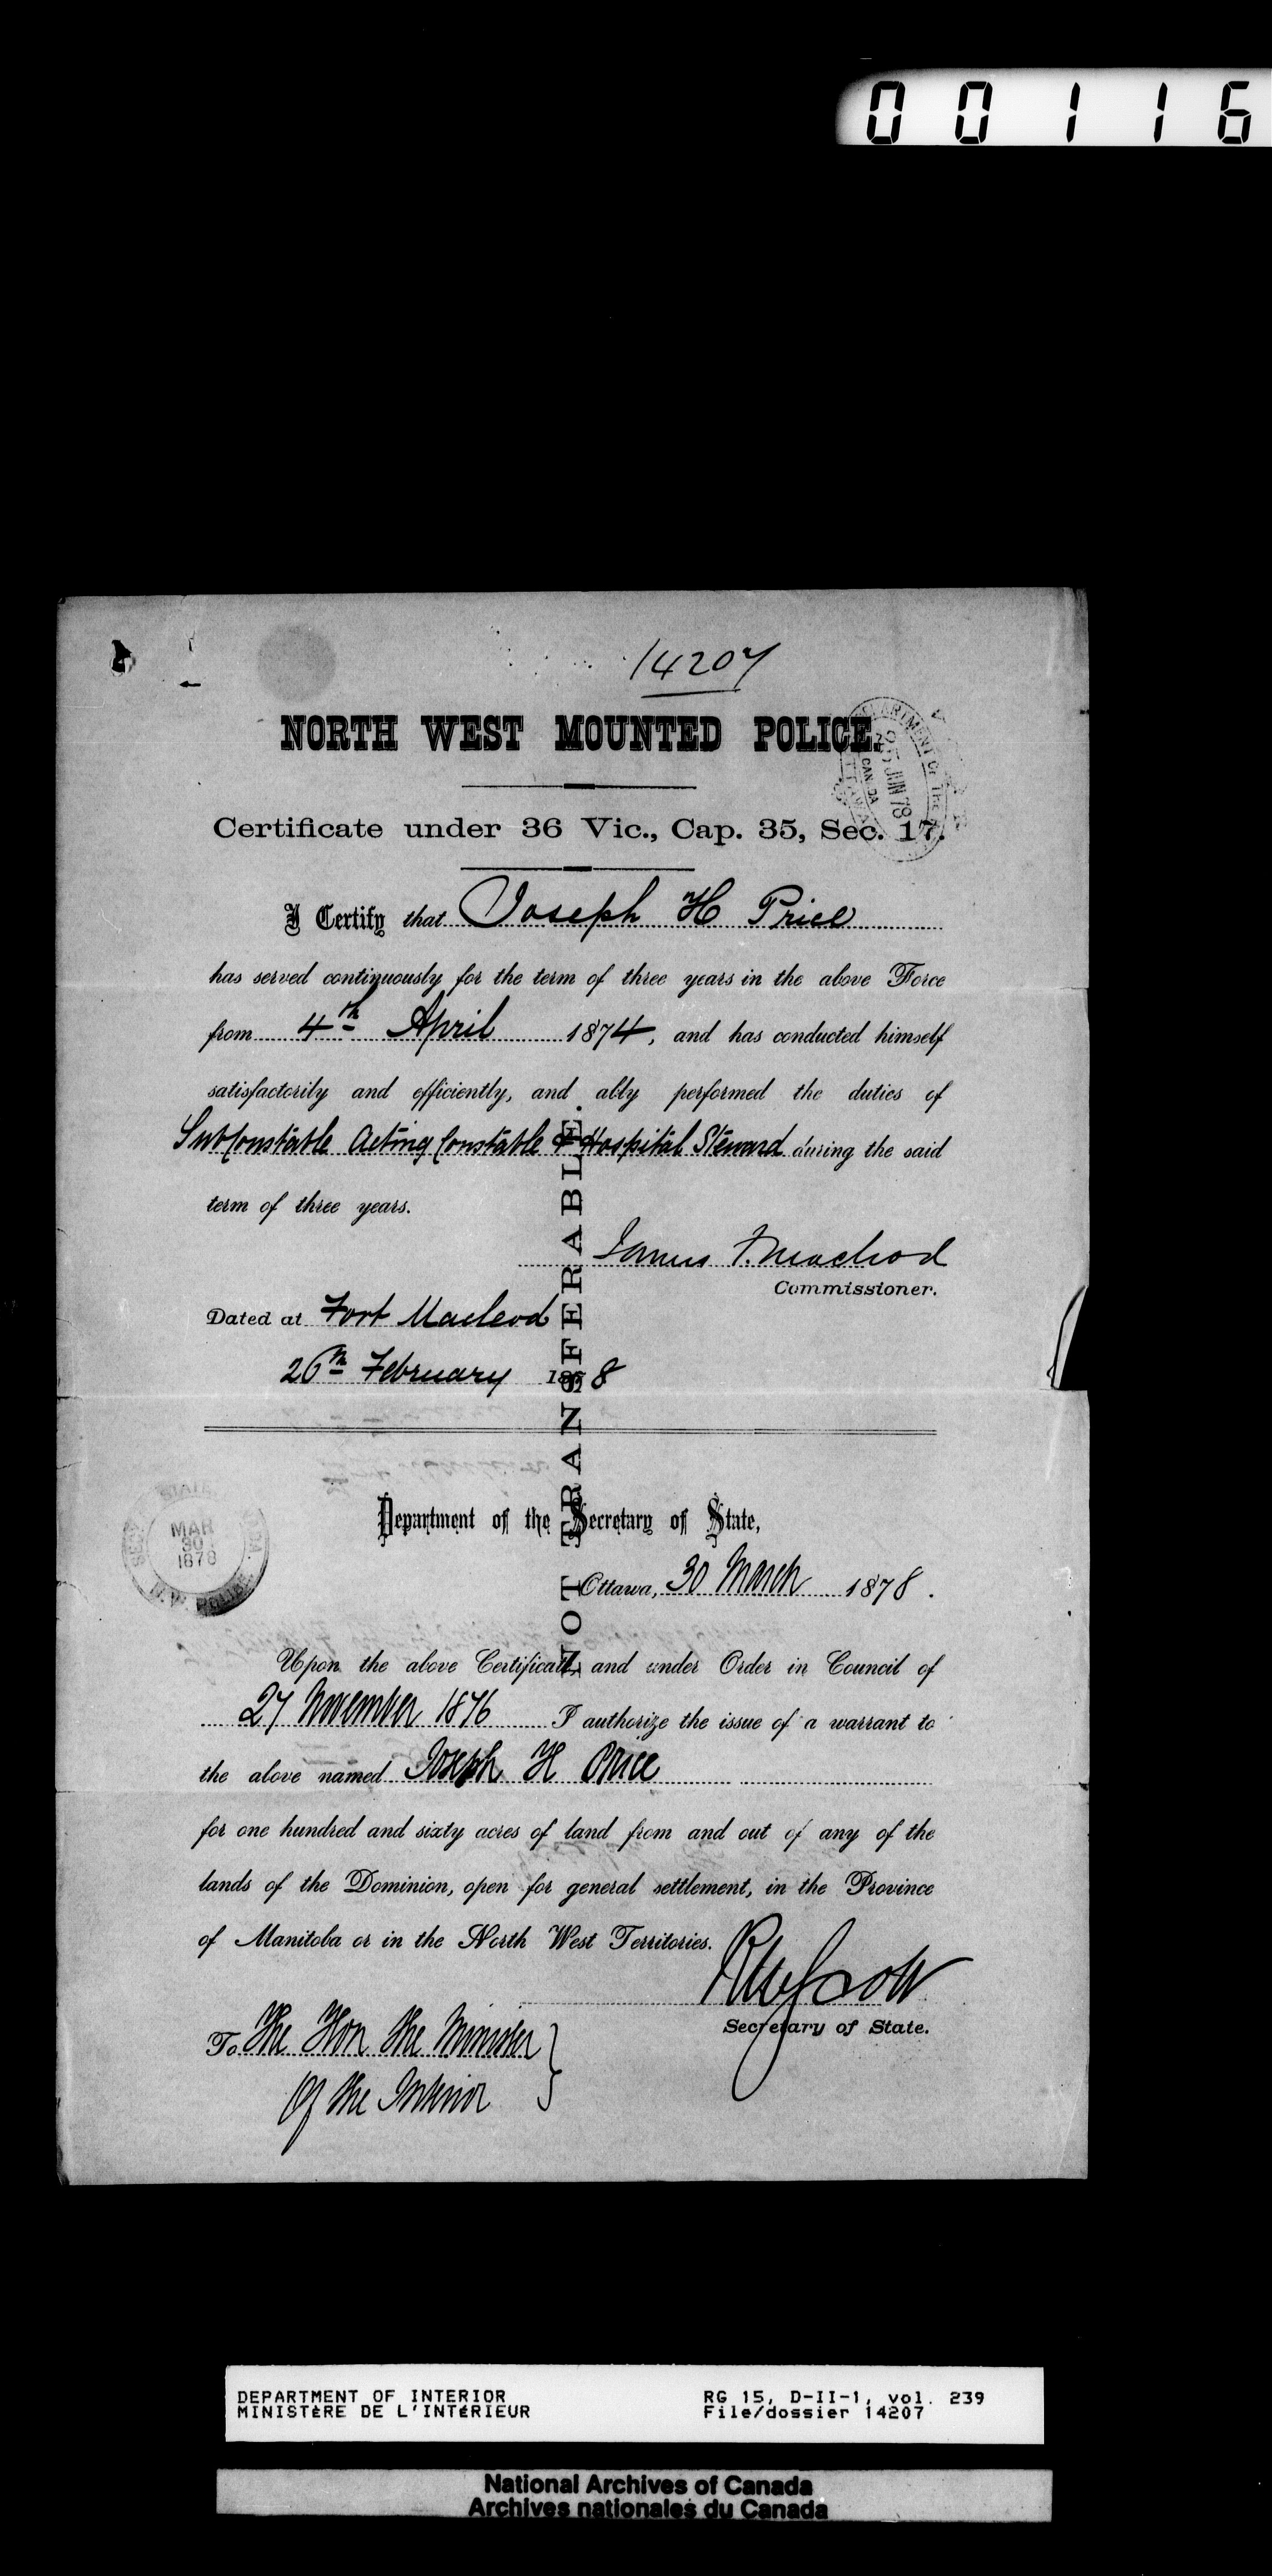 00116
14207
NORTH WEST MOUNTED POLICE.
DEPARTMENT OF THE
25 JUN 78
CANADA
Certificate under 36 Vic., Cap. 35, Sec. 17.
I Certify that Joseph H Price
has served continuously for the term of three years in the above Force
from 4th April 1874, and has conducted himself
satisfactorily and efficiently, and ably performed the duties of
SubConstable Acting Constable & Hospital Steward during the said
term of three years.
James F. Macleod
Commissioner.
Dated at Fort Macleod
26th February 1878
NOT TRANSFERABLE.
Department of the Secretary of State,
MAR
30
1878
Ottawa, 30 March 1878.
Upon the above Certificate, and under Order in Council of
27 November 1876 I authorize the issue of a warrant to
the above named Joseph H Price
for one hundred and sixty acres of land from and out of any of the
lands of the Dominion, open for general settlement, in the Province
of Manitoba or in the North West Territories.
RWScott
Secretary of State.
To The Hon the Minister
Of the Interior
DEPARTMENT OF INTERIOR
MINISTÈRE DE L'INTÉRIEUR
RG 15, D-II-1, vol. 239
File/dossier 14207
National Archives of Canada
Archives nationales du Canada